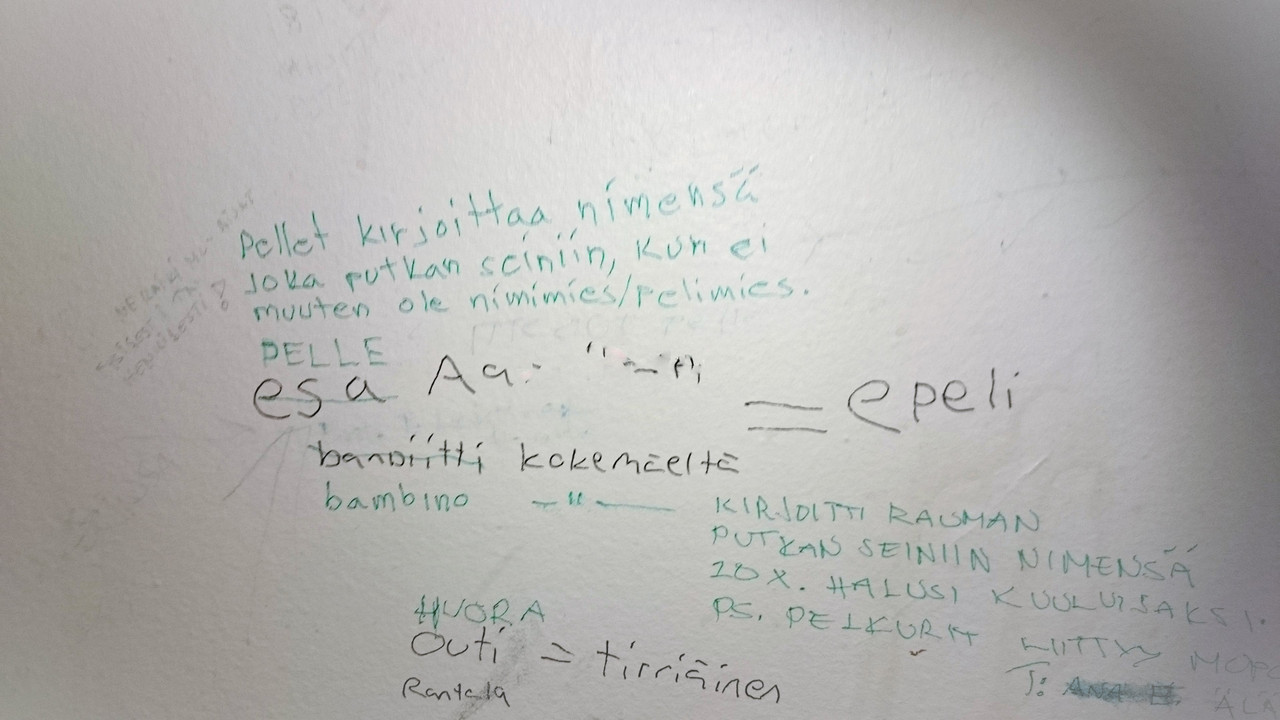 Pellet kirjoittaa nimensä
Joka putkan seiniin, kun ei
muuten ole nimimies/pelimies.
PELLE
esa Aa.
= epeli
banditti kokemäeltä
bambino —"—
KIRJOITTI RAUMAN
PUTKAN SEINIIN NIMENSÄ
20X. HALUSI KUULUISAKSI.
PS. PELKURIT LIITTYY
T:
ÄLÄ
HUORA
Outi = tirriäinen
Rantala